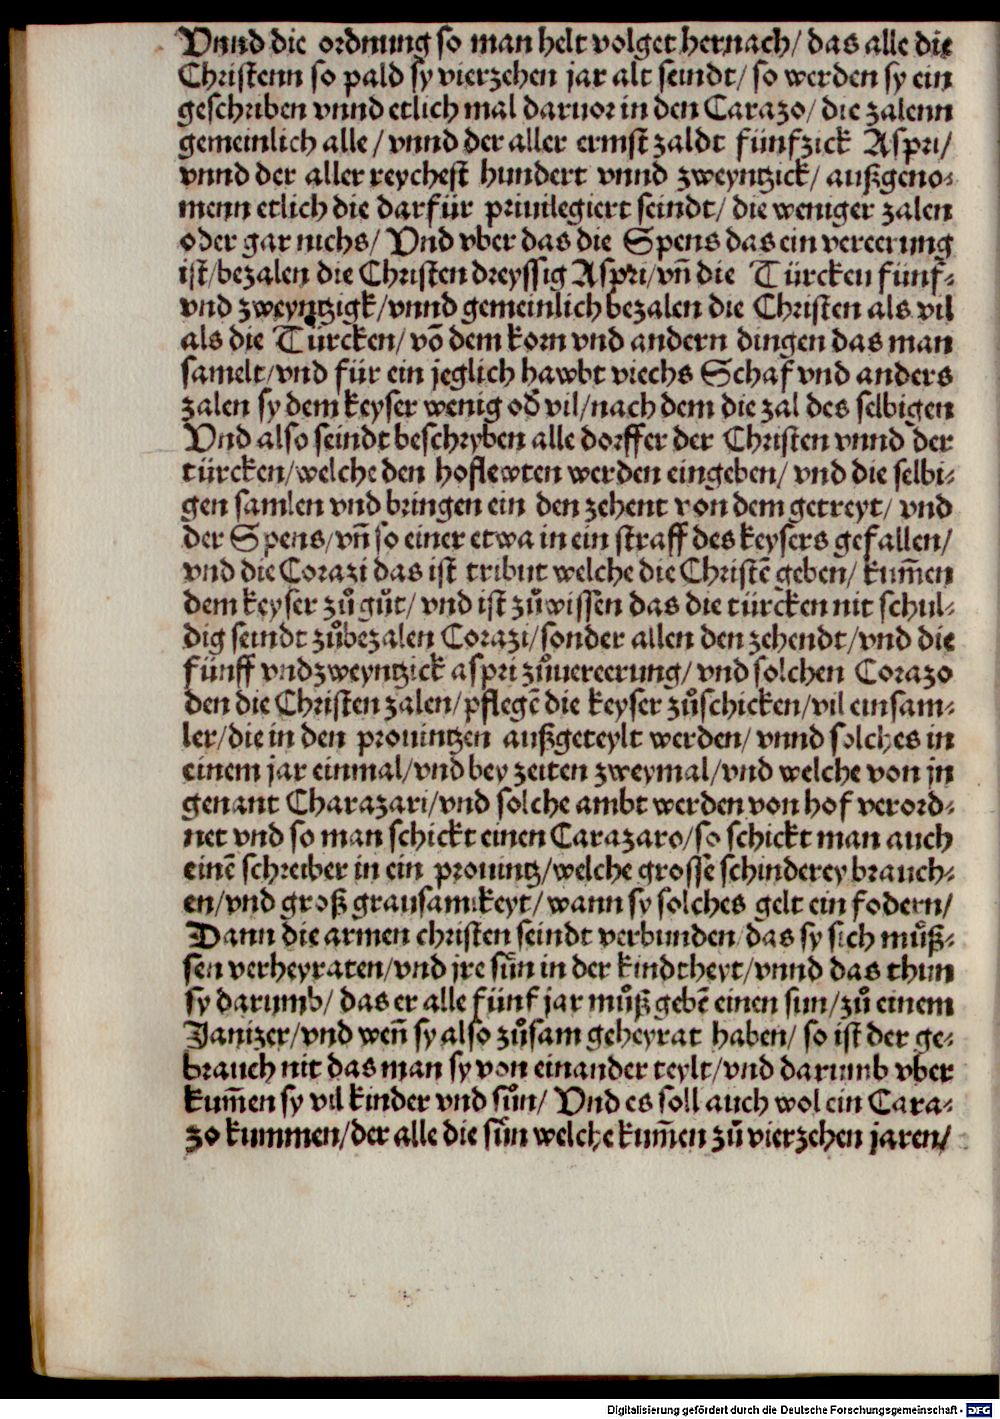 Vnnd die ordnung so man helt volget hernach/ das alle die
Christenn so pald sy vierzehen jar alt seindt/ so werden sy ein
geschriben vnnd etlich mal daruor in den Carazo/ die zalenn
gemeinlich alle/ vnnd der aller ermst zaldt fünfzick Aspri/
vnnd der aller reychest hundert vnnd zweyntzick/ außgeno-
menn etlich die darfür priuilegiert seindt/ die weniger zalen
oder gar nichs/ Vnd vber das die Spens das ein vereerung
ist/bezalen die Christen dreyssig Aspri/vñ die Türcken fünf-
vnd zweyntzigk/vnnd gemeinlich bezalen die Christen als vil
als die Türcken/võ dem korn vnd andern dingen das man
samelt/vnd für ein jeglich hawbt viechs Schaf vnd anders
zalen sy dem keyser wenig od̃ vil/nach dem die zal des selbigen
Vnd also seindt beschryben alle dorffer der Christen vnnd der
türcken/welche den hoflewten werden eingeben/ vnd die selbi-
gen samlen vnd bringen ein den zehent von dem getreyt/ vnd
der Spens/vñ so einer etwa in ein straff des keysers gefallen/
vnd die Corazi das ist tribut welche die Christẽ geben/ kum̃en
dem keyser zů gůt/ vnd ist zůwissen das die türcken nit schul-
dig seindt zůbezalen Corazi/sonder allen den zehendt/vnd die
fünff vndzweyntzick aspri zůuereerung/ vnd solchen Corazo
den die Christen zalen/pflegẽ die keyser zůschicken/vil einsam-
ler/die in den prouintzen außgeteylt werden/ vnnd solches in
einem jar einmal/vnd bey zeiten zweymal/vnd welche von jn
genant Charazari/vnd solche ambt werden von hof verord-
net vnd so man schickt einen Carazaro/so schickt man auch
einẽ schreiber in ein prouintz/welche grosse schinderey brauch-
en/vnd groß grausamkeyt/ wann sy solches gelt ein fodern/
Dann die armen christen seindt verbunden das sy sich můß-
sen verheyraten/vnd jre sün in der kindtheyt/vnnd das thun
sy darumb/ das er alle fünf jar můß gebẽ einen sun/zů einem
Janizer/vnd weñ sy also zůsam geheyrat haben/ so ist der ge-
brauch nit das man sy von einander teylt/vnd darumb vber
kum̃en sy vil kinder vnd sün/ Vnd es soll auch wol ein Cara-
zo kummen/der alle die sün welche kum̃en zů vierzehen jaren/
Digitalisierung gefördert durch die Deutsche Forschungsgemeinschaft - DFG